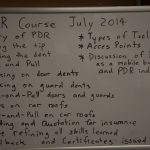 R Course July 2014
ory of PDR
ing the tip
ing the dent
and Pull
ing on door dents
king on guard dents
-and-Pull doors and guards
s on car roofs
-and-Pull on car roofs
ing and Quotation for insurance
e refining all skills learned
back and Certificates issued
* Types of Tool
* Acces Points
* Discussion of
as a mobile b
and PDR ind